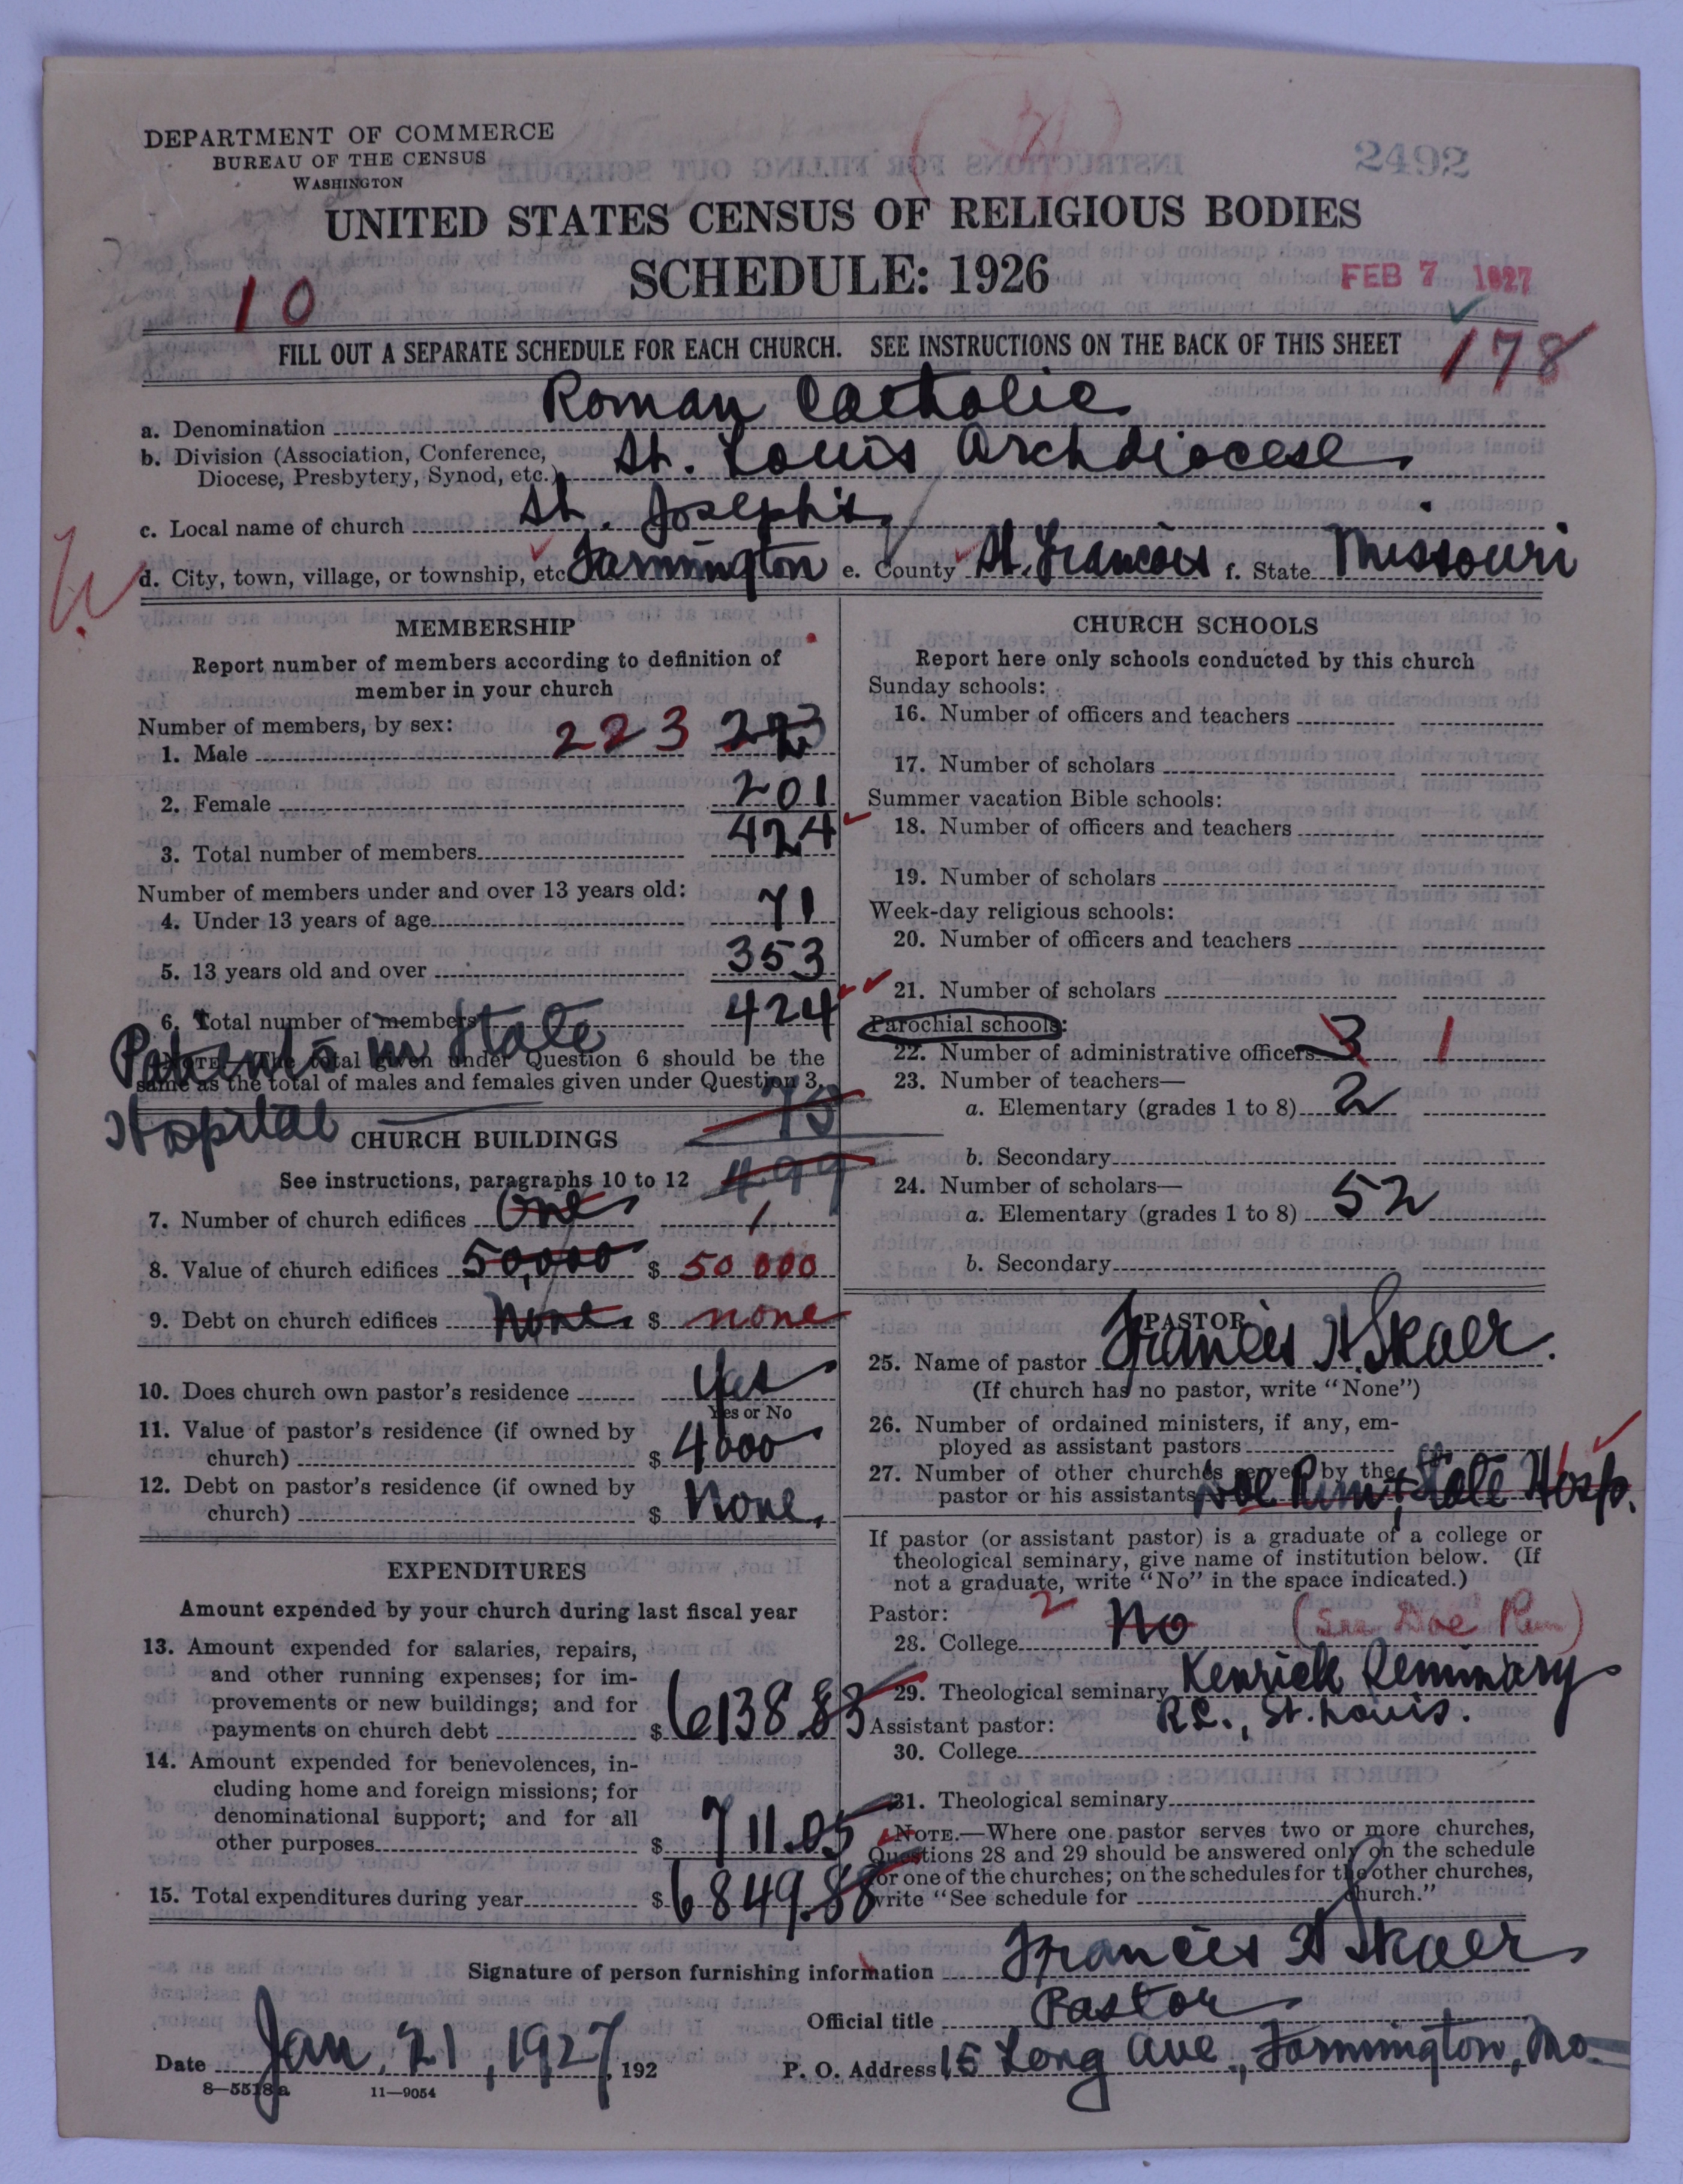 DEPARTMENT OF COMMERCE
BUREAU OF THE CENSUS
WASHINGTON
2492
UNITED STATES CENSUS OF RELIGIOUS BODIES
SCHEDULE: 1926
FEB 7 1927
10
FILL OUT A SEPARATE SCHEDULE FOR EACH CHURCH. SEE INSTRUCTIONS ON THE BACK OF THIS SHEET
178
a. Denomination Roman Catholic
b. Division (Association, Conference, Diocese, Presbytery, Synod, etc.) St. Louis Archdiocese.
c. Local name of church St. Joseph's
d. City, town, village, or township, etc Farmington e. County St. Francois f. State Missouri
MEMBERSHIP
Report number of members according to definition of
member in your church
Number of members, by sex:
1. Male 223 223
2. Female 201
3. Total number of members 424
Number of members under and over 13 years old:
4. Under 13 years of age 71
5. 13 years old and over 353
6. Total number of members 424
NOTE.—The total given under Question 6 should be the
same as the total of males and females given under Question 3.
Patients in State
Hospital 75
499
CHURCH BUILDINGS
See instructions, paragraphs 10 to 12
7. Number of church edifices One 1
8. Value of church edifices 50,000 $ 50 000
9. Debt on church edifices None. $ none
10. Does church own pastor's residence Yes
Yes or No
11. Value of pastor's residence (if owned by
church) $ 4000
12. Debt on pastor's residence (if owned by
church) $ None.
EXPENDITURES
Amount expended by your church during last fiscal year
13. Amount expended for salaries, repairs,
and other running expenses; for im-
provements or new buildings; and for
payments on church debt $ 6138.83
14. Amount expended for benevolences, in-
cluding home and foreign missions; for
denominational support; and for all
other purposes $ 711.05
15. Total expenditures during year $ 6849.88
CHURCH SCHOOLS
Report here only schools conducted by this church
Sunday schools:
16. Number of officers and teachers
17. Number of scholars
Summer vacation Bible schools:
18. Number of officers and teachers
19. Number of scholars
Week-day religious schools:
20. Number of officers and teachers
21. Number of scholars
Parochial schools:
22. Number of administrative officers 3 1
23. Number of teachers—
a. Elementary (grades 1 to 8) 2
b. Secondary
24. Number of scholars—
a. Elementary (grades 1 to 8) 52
b. Secondary
PASTOR
25. Name of pastor Francis H. Skaer.
(If church has no pastor, write "None")
26. Number of ordained ministers, if any, em-
ployed as assistant pastors
27. Number of other churches served by the
pastor or his assistants Doe Run & State Hosp.
If pastor (or assistant pastor) is a graduate of a college or
theological seminary, give name of institution below. (If
not a graduate, write "No" in the space indicated.)
Pastor: 2
28. College No (See Doe Run)
29. Theological seminary Kenrick Seminary
R.C., St. Louis.
Assistant pastor:
30. College
31. Theological seminary
NOTE.—Where one pastor serves two or more churches,
Questions 28 and 29 should be answered only on the schedule
for one of the churches; on the schedules for the other churches,
write "See schedule for church."
Signature of person furnishing information Francis H Skaer
Official title Pastor
Date Jan. 21, 1927, 192
P. O. Address 15 Long Ave., Farmington, Mo.
8—5518a 11—9054